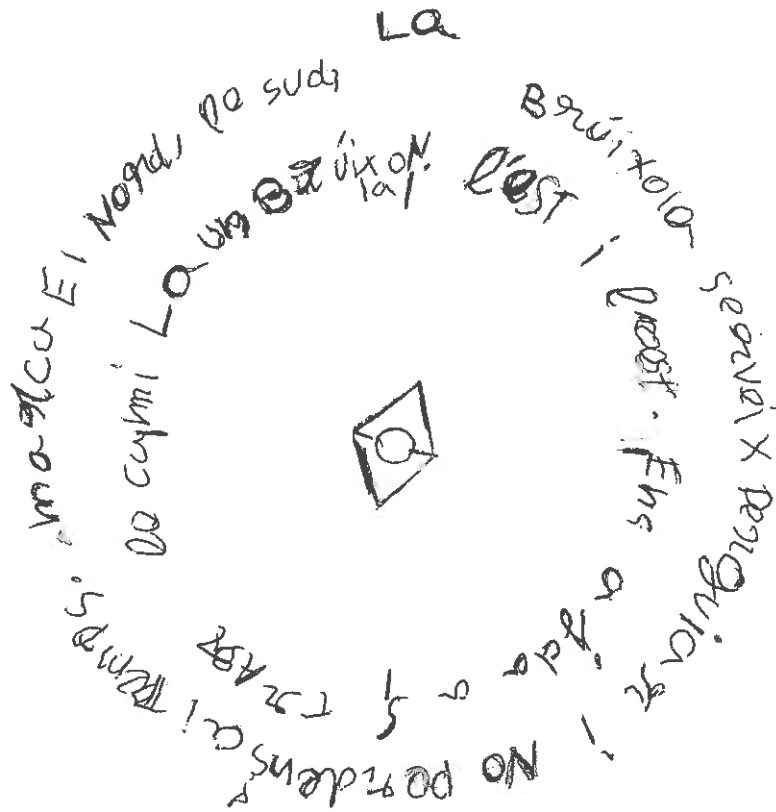 La Brúixola serveix per guiar i No perdens ai temps. marca El Nord, de sud,
l'est i l'oest. Ens ajuda a camí La un Brúixola